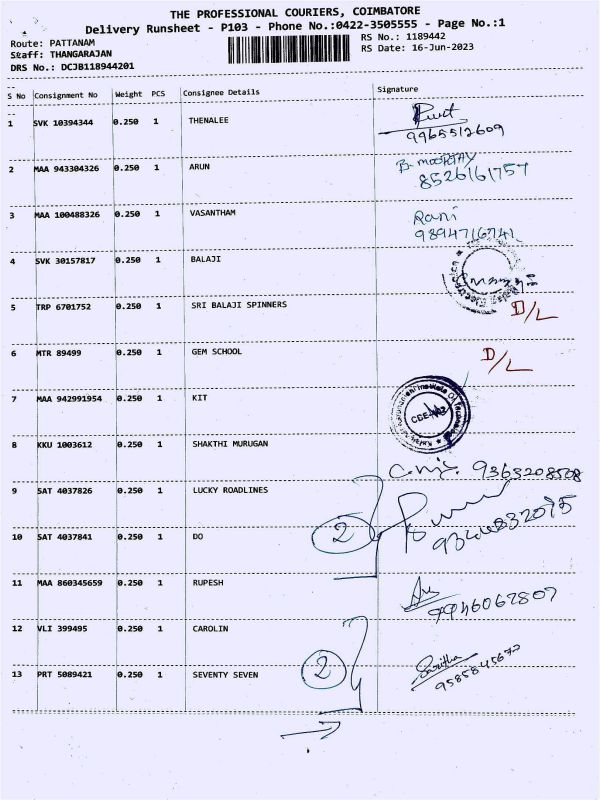 THE PROFESSIONAL COURIERS, COIMBATORE
Delivery Runsheet - P103 - Phone No.:0422-3505555 - Page No.:1
Route: PATTANAM RS No.: 1189442
Staff: THANGARAJAN RS Date: 16-Jun-2023
DRS No.: DCJB118944201
S No Consignment No Weight PCS Consignee Details Signature
1 SVK 10394344 0.250 1 THENALEE
9965512609
2 MAA 943304326 0.250 1 ARUN B. moorthy
8526161757
3 MAA 100488326 0.250 1 VASANTHAM Rani
9894716741
4 SVK 30157817 0.250 1 BALAJI
5 TRP 6701752 0.250 1 SRI BALAJI SPINNERS D/L
6 MTR 89499 0.250 1 GEM SCHOOL D/L
7 MAA 942991954 0.250 1 KIT
8 KKU 1003612 0.250 1 SHAKTHI MURUGAN
9363208508
9 SAT 4037826 0.250 1 LUCKY ROADLINES
2
10 SAT 4037841 0.250 1 DO
11 MAA 860345659 0.250 1 RUPESH
9946062807
12 VLI 399495 0.250 1 CAROLIN
2
13 PRT 5089421 0.250 1 SEVENTY SEVEN Savitha